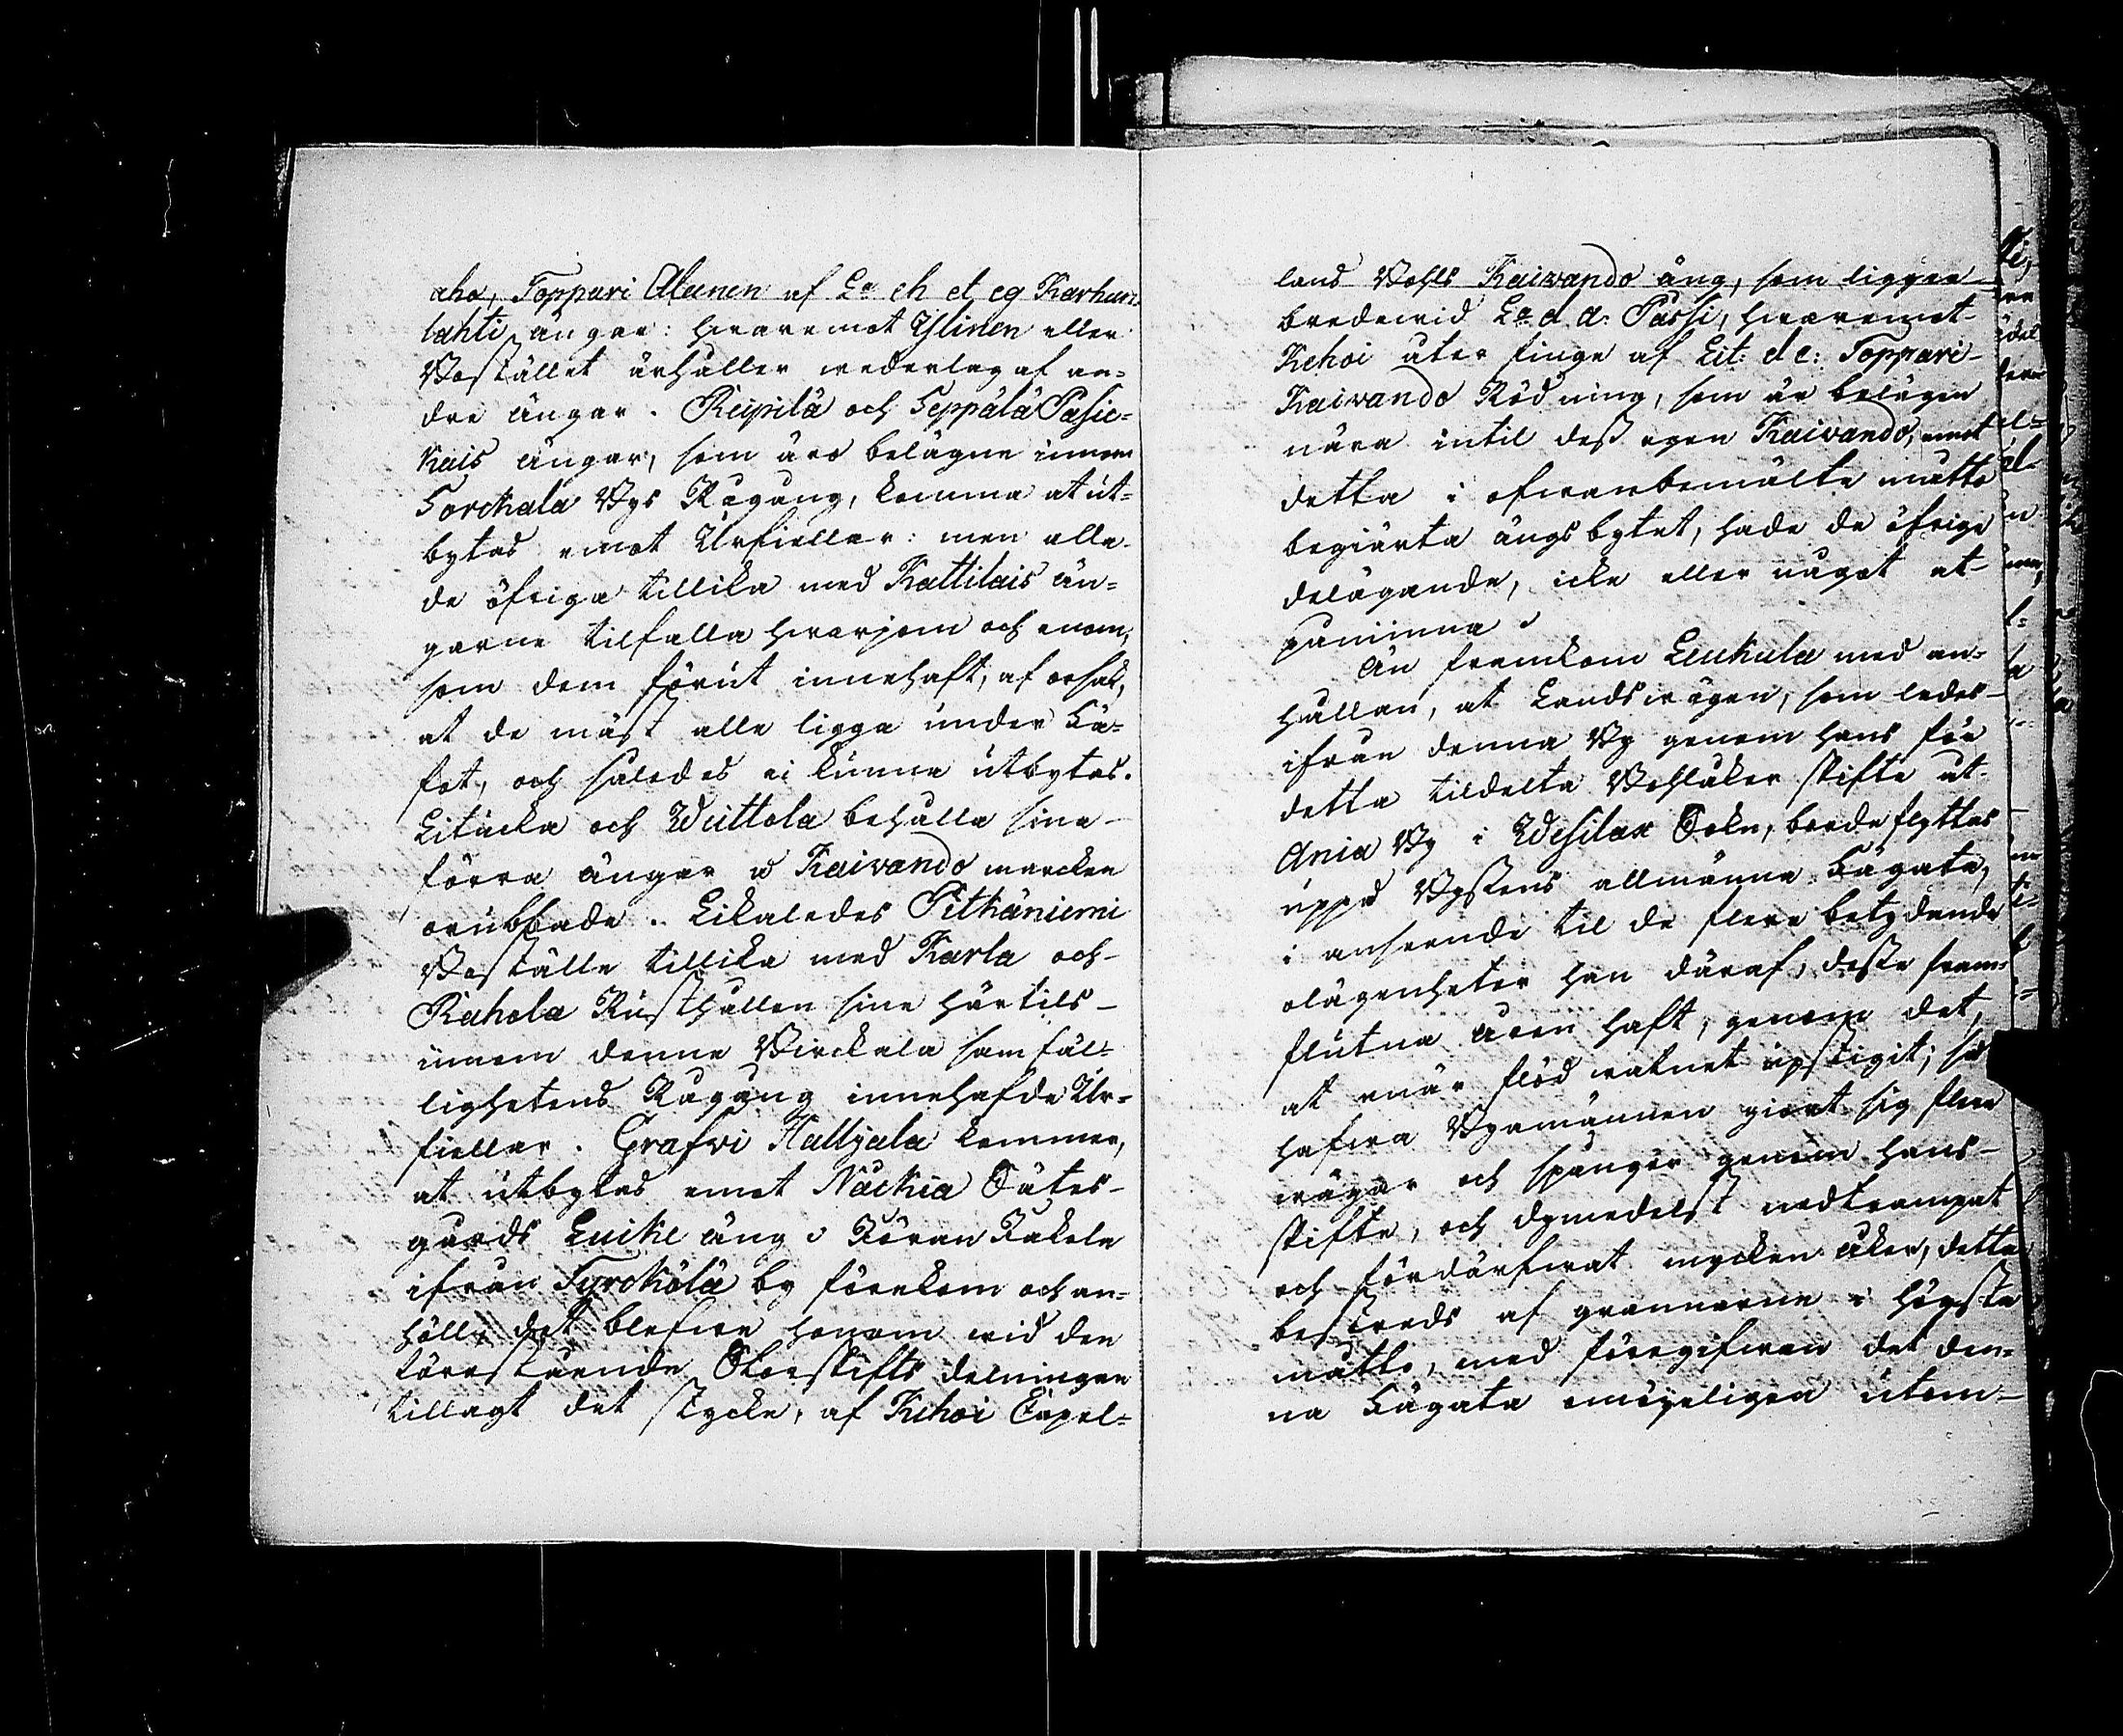 aho, Toppari Alanen af La eh et eg Karhun
lahti ängar: hvaremot Ylinen eller
Boställlet ärhåller wederlag af an-
dra ängar. Reipilä och Seppälä Pasic-
kais ängar, som äro belägne innom
Sorckala Bys Rågång, komma at ut-
bytas emot Urfiellar: men alla
de öfriga tillika med Kattilais än-
garne tilfalla hvarjom och enom,
som dem förut innehaft, af orsak,
at de mäst alla ligga under Lä-
fot, och således ei kunna utbytas.
Litucka och Wuttola behålla sina
förra ängar å Kaivando marcken
orubbade. Likaledes Pitkäniemi
Boställe tillika med Karla och
Rahola Rusthållen sine härtils
innom denne Birckala samfäl-
lighetens Rågång innehafde Ur-
fiellar. Grafvi Halljala kommer,
at utbytas emot Näckia Säte-
gårds Luike äng. Jöran Jakola
ifrån Tyrckölä by förekom och an-
höll, det blefve honom wid den
förestående Storskifts delningen
tillagt det stycke, af Kehoi Capel-
lans Bohls Kaivando äng, som ligger
bredewid La d. d. Passi, hvaremot
Kehoi åter finge af Lit: d e: Toppari
Kaivando Rödning, som är belägen
nära intil dess egen Kaivando, emot
detta i ofwanbemälte måtto
begiärta ängsbytet, hade de öfrige
delägande, icke eller något at
påminna.
Än framkom Leukula med an-
hållan, at Landswägen, som leder
ifrån denna By genom hans för
detta tildelta Bohlåker skifte åt
Ania By i Wesilax Sokn, borde flyttas
uppå Bystens allmänna Fägata,
i anseende til de flere betydande
olägenheter han däraf, desse fram-
flutna åren haft, genom det,
at när flod watnet upstigit, så
hafwa Byamännen giort sig flere
wägar och spånger genom hans
skifte, och dymedelst nedtrampat
och fördärfwat mycken åker, detta
bestreds af grannarne i högsta
måtto, med föregifwan det den-
na Fägata omöjeligen utom-